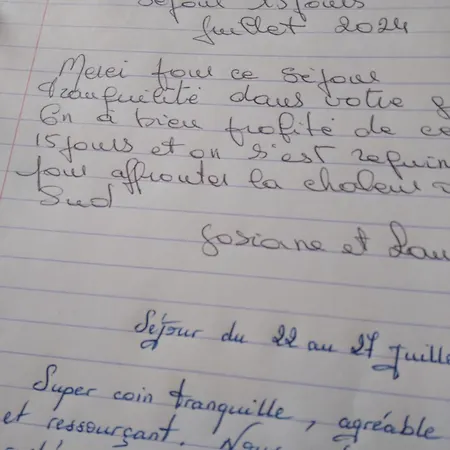 Séjour 15 jours
Juillet 2024
Merci pour ce séjour
tranquilité dans votre g
On a bien profité de ce
15 jours et on s'est requin
pour affronter la chaleur
Sud
Josiane et
Séjour du 22 au 27 juille
Super coin tranquille, agréable
et ressourçant. Nou